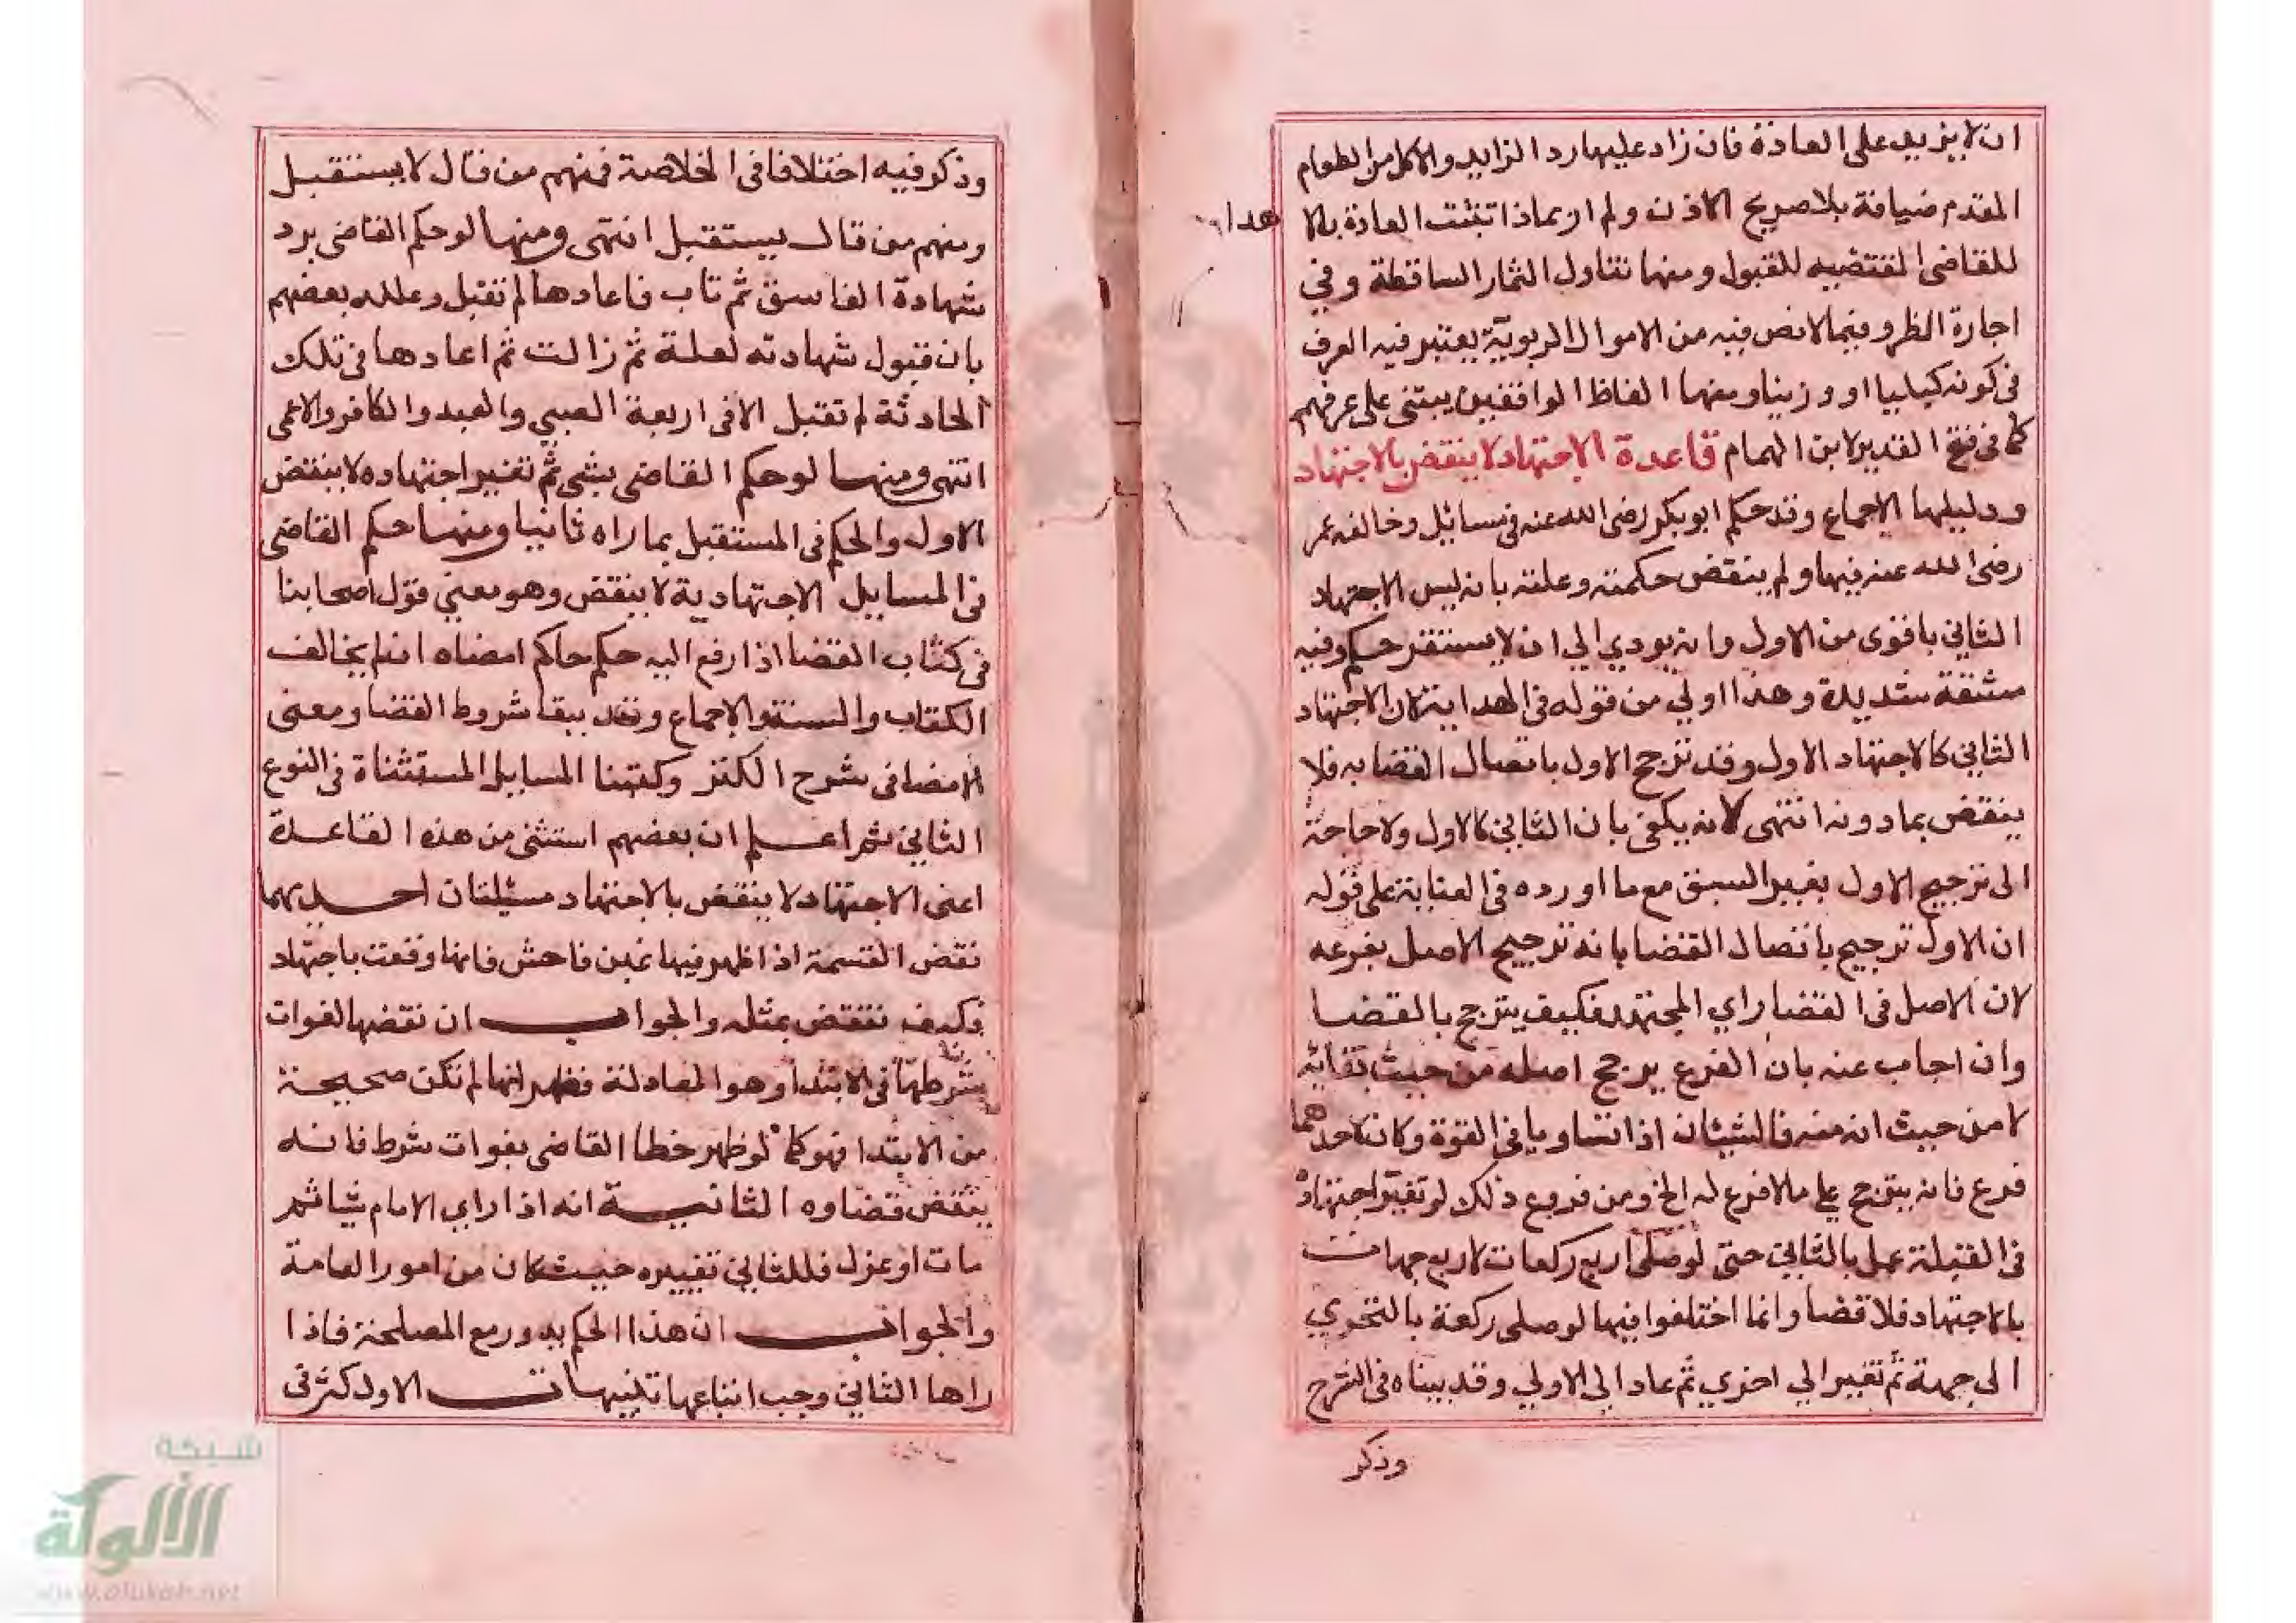 ان لا يزيد على العادة فان زاد عليها رد الزايد والاكل من الطعام
المقدم ضيافة بلا صريح الاذن ولم ار بماذا تثبت العادة بالا
هدا
للقاضى المقتضيه للقبول ومنها تناول الثمار الساقطة وفي
اجارة الظر وفيما لا نص فيه من الاموال الربوية يعتبر فيه العرف
فى كونه كيليا او وزنيا ومنها الفاظ الواقفين يبتنى على عرفهم
كما فى فتح القدير لابن الهمام قاعدة الاجتهاد لا ينقض بالاجتهاد
ودليلها الاجماع وقد حكم ابو بكر رضى الله عنه فى مسائل وخالفه عمر
رضى الله عنه فيها ولم ينقض حكمته وعلته بانه ليس الاجتهاد
الثاني باقوى من الاول وانه يودي الي ان لا يستقر حكم وفيه
مشقة شديدة وهذا اولي من قوله فى الهداية لان الاجتهاد
الثاني كالاجتهاد الاول وقد ترجح الاول باتصال القضا به فلا
ينقض بما دونه انتهى لانه يكفى بان الثاني كالاول ولا حاجة
الى ترجيح الاول بغير السبق مع ما اورده فى العناية على قوله
ان الاول ترجيح باتصال القضا بانه ترجيح الاصل بفرعه
لان الاصل فى القضا راي المجتهد فكيف يترجح بالقضا
وان اجاب عنه بان الفرع يرجح اصله من حيث بقائه
لا من حيث انه منه فالشيئان اذا تساويا في القوة وكان لاحدهما
فرع فانه يترجح على ما لا فرع له الخ ومن فروع ذلك لو تغير اجتهاده
فى القبلة عمل بالثاني حتى لو صلى اربع ركعات لاربع جهات
بالاجتهاد فلا قضا وانما اختلفوا فيها لو صلى ركعة بالتحري
الى جهة ثم تغير الي اخري ثم عاد الي الاولي وقد بيناه فى الشرح
وذكر
وذكر فيه اختلافا فى الخلاصة فمنهم من قال لا يستقبل
ومنهم من قال يستقبل انتهى ومنها لو حكم القاضى برد
شهادة الفاسق ثم تاب فاعادها لم تقبل وعلله بعضهم
بان قبول شهادته لعلة ثم زالت ثم اعادها فى تلك
الحادثة لم تقبل الا فى اربعة الصبي والعبد والكافر والاعمى
انتهى ومنها لو حكم القاضى بشى ثم تغير اجتهاده لا ينقض
الاول والحكم فى المستقبل بما راه ثانيا ومنها حكم القاضى
فى المسايل الاجتهادية لا ينقض وهو معني قول اصحابنا
فى كتاب القضا اذا رفع اليه حكم حاكم امضاه ان لم يخالف
الكتاب والسنة والاجماع وقد بينا شروط القضا ومعنى
الامضا فى شرح الكنز وكتبنا المسايل المستثناة فى النوع
الثاني ثم اعلم ان بعضهم استثنى من هذه القاعدة
اعنى الاجتهاد لا ينقض بالاجتهاد مسئلتان احديهما
نقض القسمة اذا ظهر فيها غبن فاحش فانها وقعت باجتهاد
فكيف تنقض بمثله والجواب ان نقضها لفوات
شرطها فى الابتدا وهو المعادلة فظهر انها لم تكن صحيحة
من الابتدا فهو كما لو ظهر خطا القاضى بفوات شرط فانه
ينقض قضاوه الثانية انه اذا راي الامام شيا ثم
مات او عزل فللثاني تغييره حيث كان من امور العامة
والجواب ان هذا الحكم يدور مع المصلحة فاذا
راها الثاني وجب اتباعها تنبيهات الاول كثر فى
شبكة
الألوكة
www.alukah.net